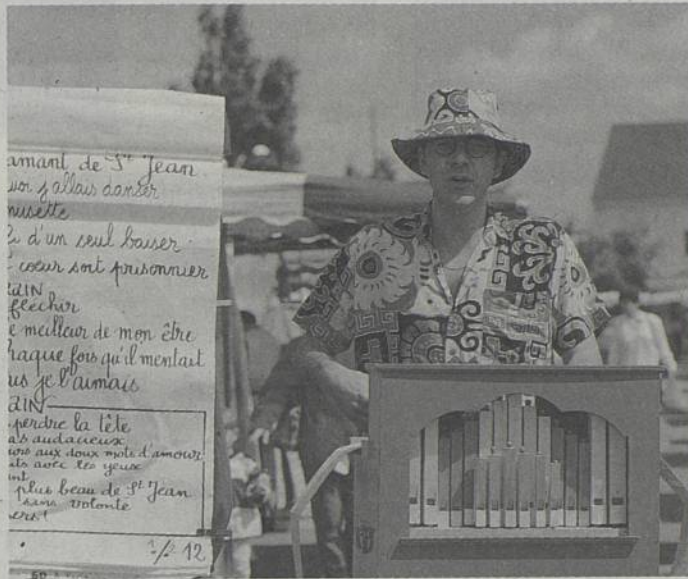 amant de St Jean
uoi j'allais danser
musette
d'un seul baiser
cœur sont prisonnier
AIN
fléchir
e meilleur de mon être
haque fois qu'il mentait
us je l'aimais
AIN
perdre la tête
as audacieux
ours aux doux mots d'amour
its avec les yeux
ant
plus beau de St Jean
sans volonté
ers!
1/2 12